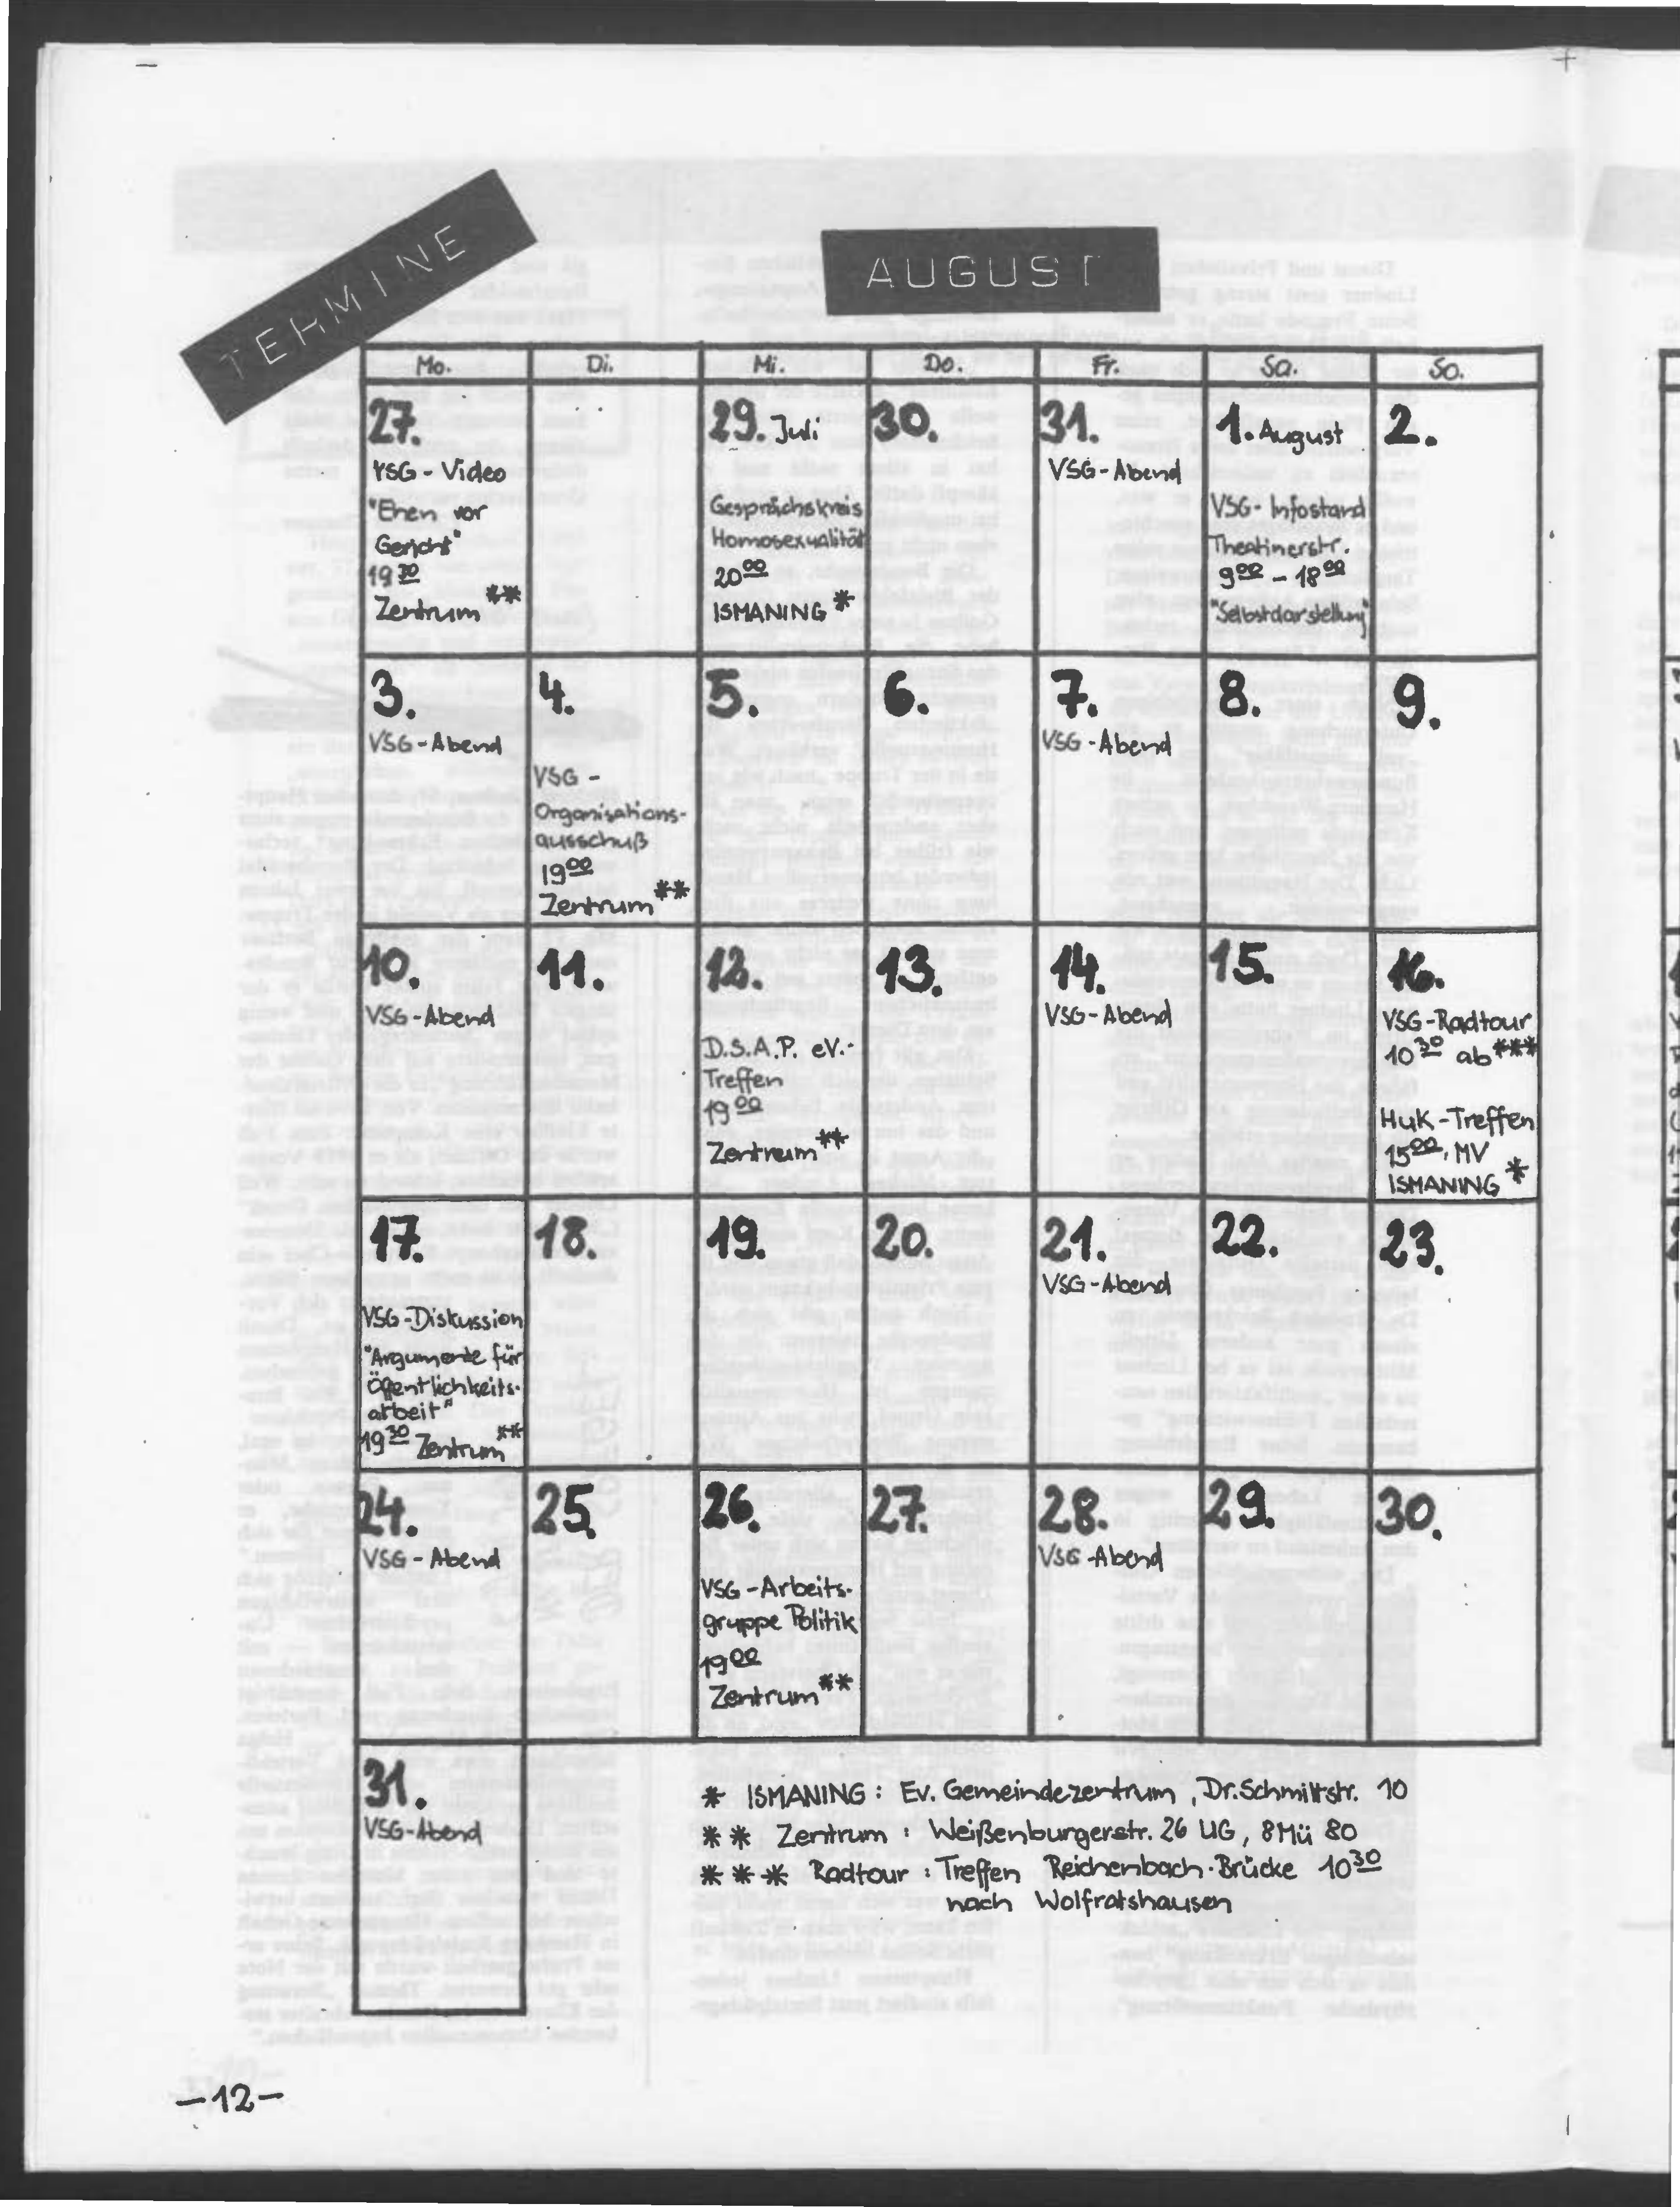 TERMINE
AUGUST
Mo. Di. Mi. Do. Fr. Sa. So.
27.
VSG - Video
"Ehen vor
Gericht"
19 30
Zentrum **
29. Juli
Gesprächskreis
Homosexualität
20 00
ISMANING *
30.
31.
VSG - Abend
1. August
VSG - Infostand
Theatinerstr.
9 00 - 18 00
"Selbstdarstellung"
2.
3.
VSG - Abend
4.
VSG -
Organisations-
ausschuß
19 00
Zentrum **
5.
6.
7.
VSG - Abend
8.
9.
10.
VSG - Abend
11.
12.
D.S.A.P. eV.-
Treffen
19 00
Zentrum **
13.
14.
VSG - Abend
15.
16.
VSG - Radtour
10 30 ab ***
HuK - Treffen
15 00, MV
ISMANING *
17.
VSG - Diskussion
"Argumente für
Öffentlichkeits-
arbeit"
19 30 Zentrum **
18.
19.
20.
21.
VSG - Abend
22.
23.
24.
VSG - Abend
25.
26.
VSG - Arbeits-
gruppe Politik
19 00
Zentrum **
27.
28.
VSG - Abend
29.
30.
31.
VSG - Abend
* ISMANING : Ev. Gemeindezentrum, Dr. Schmittstr. 10
** Zentrum : Weißenburgerstr. 26 UG, 8 Mü 80
*** Radtour : Treffen Reichenbach-Brücke 10 30
nach Wolfratshausen
-12-